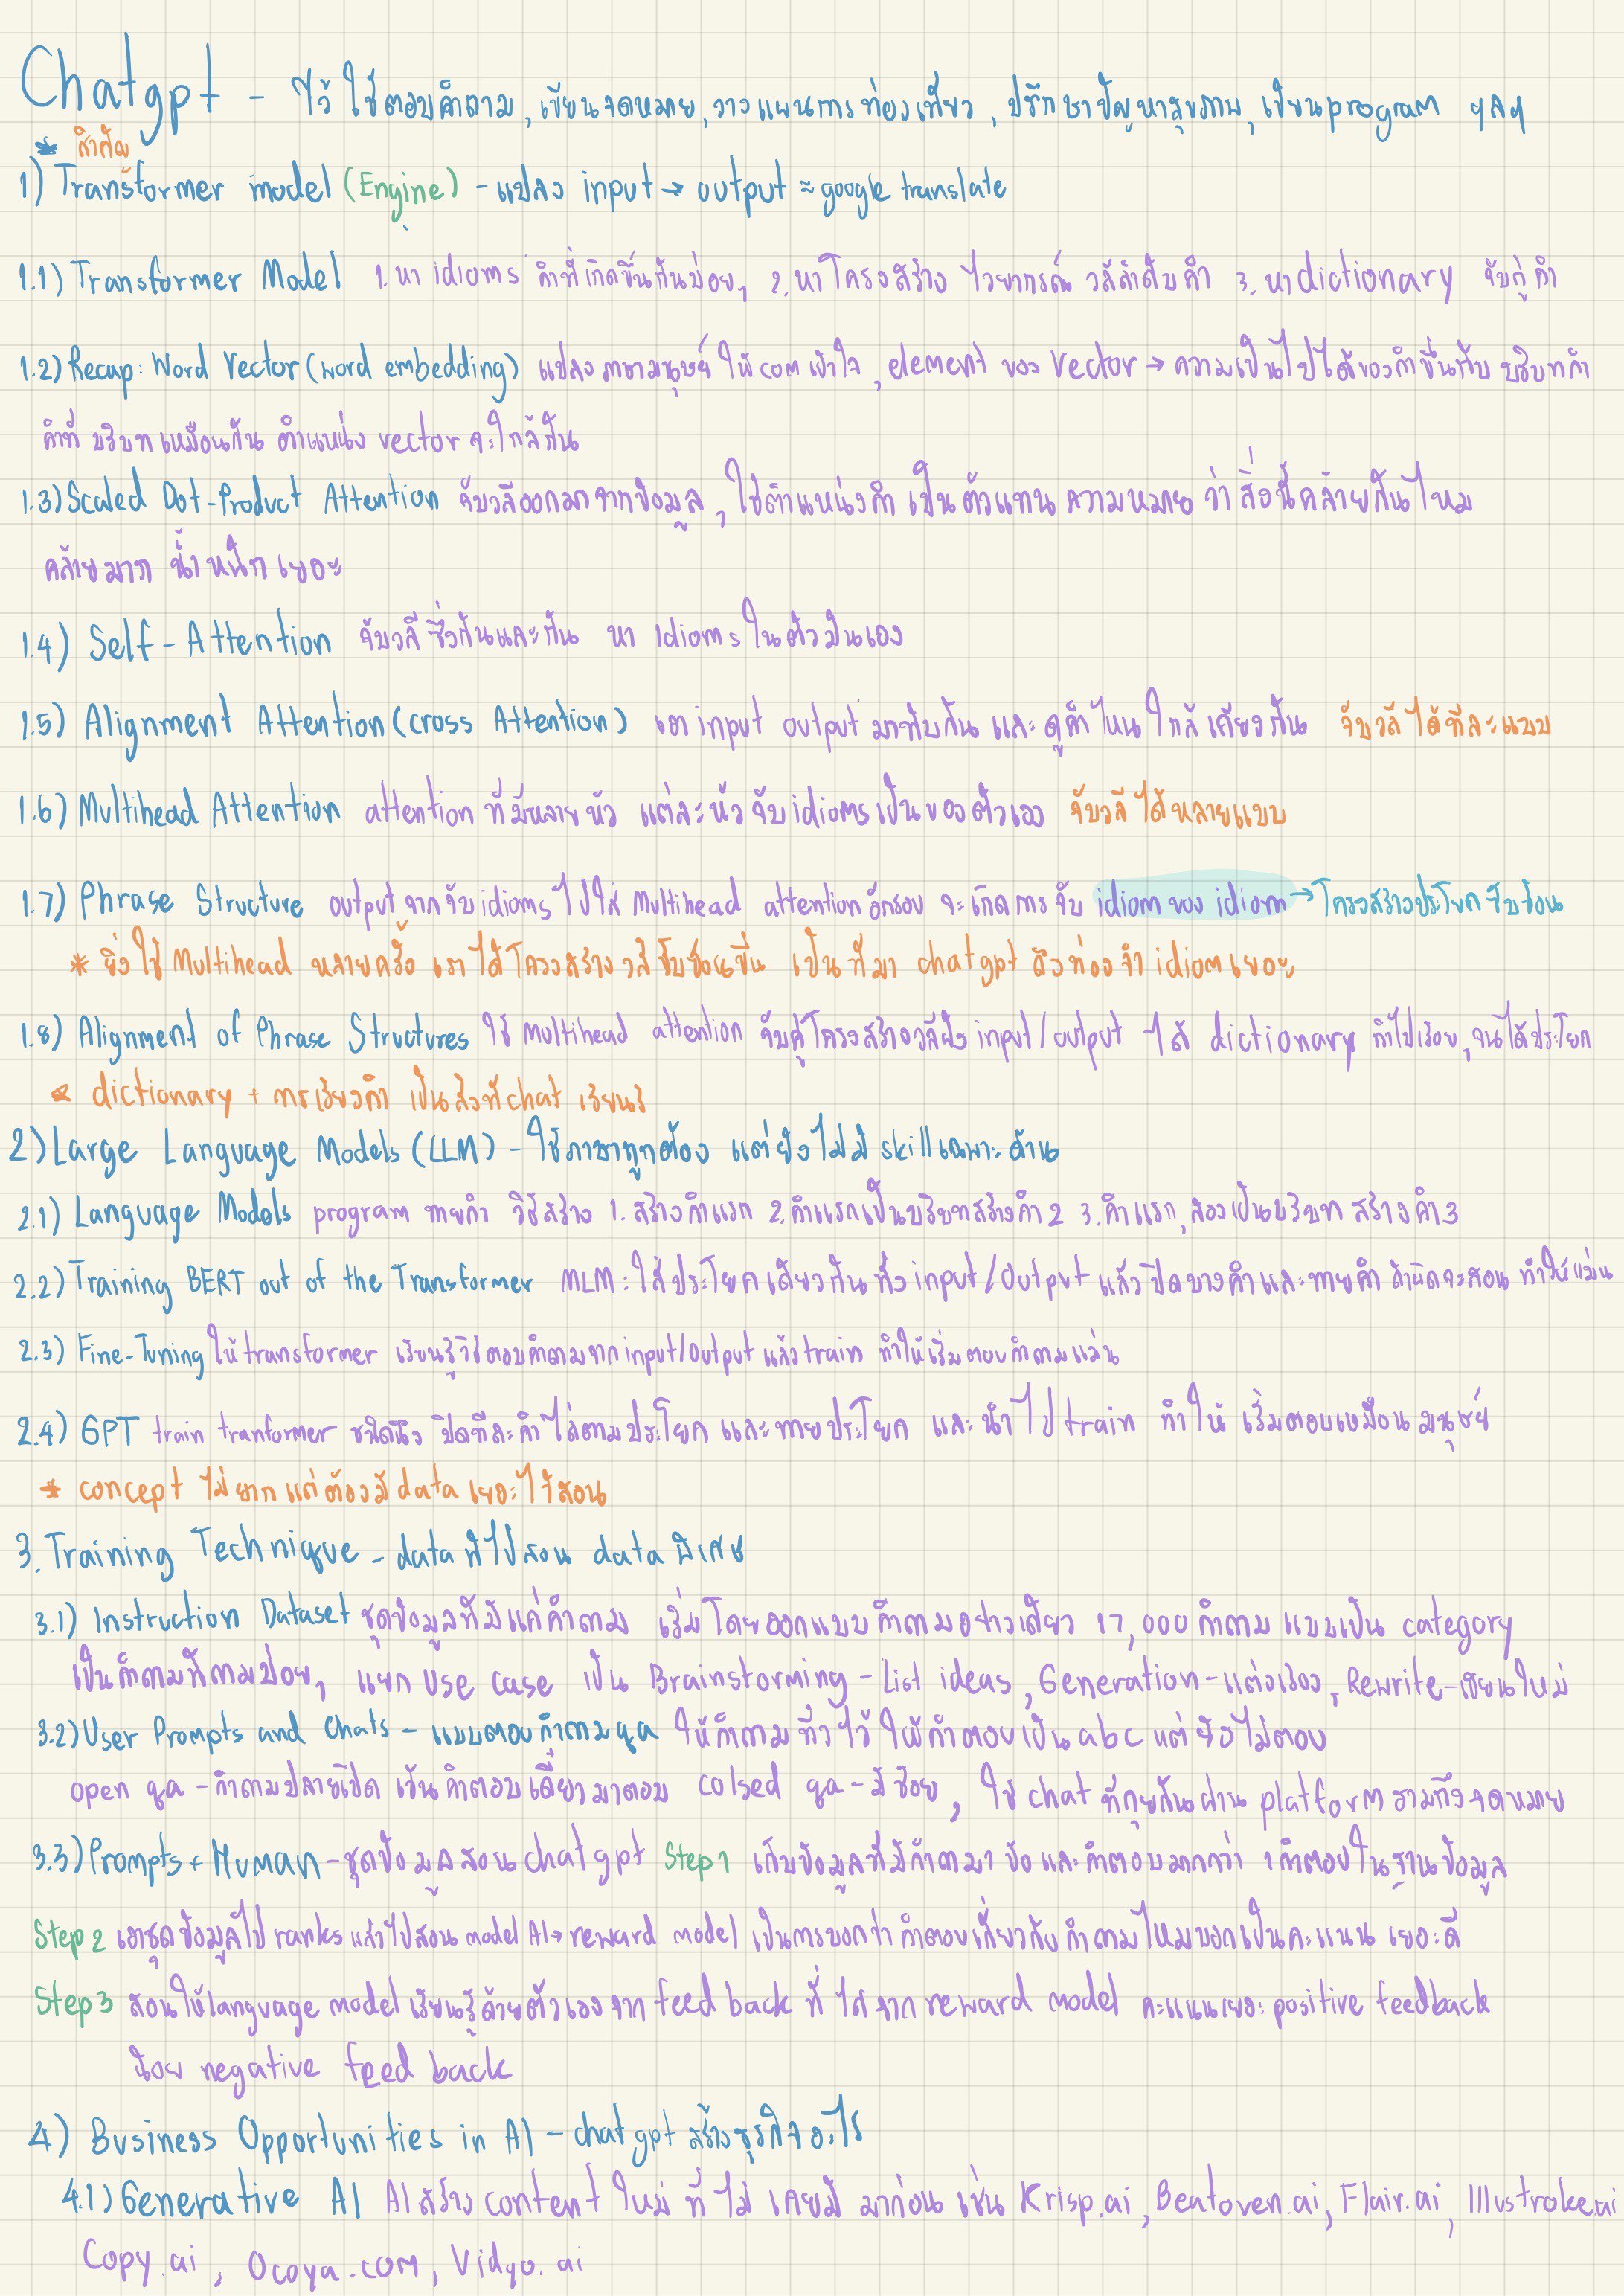 Chatgpt - ไว้ ใช้ตอบคำถาม, เขียนจดหมาย, วางแผนการท่องเที่ยว, ปรึกษาปัญหาสุขภาพ, เขียนprogram ฯลฯ
* สำคัญ
1) Transformer model (Engine) - แปลง input → output ≈ google translate
1.1) Transformer Model 1. หา idioms คำที่เกิดขึ้นกันบ่อยๆ 2. หาโครงสร้าง ไวยากรณ์ วลีลำดับคำ 3. หา dictionary จับคู่คำ
1.2) Recap: Word Vector (word embedding) แปลงภาษามนุษย์ ให้ com เข้าใจ, element ของ Vector → ความเป็นไปได้ของคำขึ้นกับ บริบทคำ
คำที่ บริบทเหมือนกัน ตำแหน่ง vector จะใกล้กัน
1.3) Scaled Dot-Product Attention จับวลีออกมาจากข้อมูล, ใช้ตำแหน่งคำ เป็นตัวแทน ความหมาย ว่า สิ่งนี้คล้ายกันไหม
คล้ายมาก น้ำหนักเยอะ
1.4) Self-Attention จับวลีซึ่งกันและกัน หา Idioms ในตัวมันเอง
1.5) Alignment Attention (cross Attention) เอา input output มาทับกัน และดูคำไหนใกล้เคียงกัน จับวลีได้ทีละแบบ
1.6) Multihead Attention attention ที่มีหลายหัว แต่ละหัวจับ idioms เป็นของตัวเอง จับวลีได้หลายแบบ
1.7) Phrase Structure output จากจับ idioms ไปใส่ Multihead attention อีกรอบ จะเกิดการจับ idiom ของ idiom → โครงสร้างประโยคซับซ้อน
* ยิ่งใช้ Multihead หลายครั้ง เราได้โครงสร้างวลีซับซ้อนขึ้น เป็นที่มา chatgpt ถึงท่องจำ idiom เยอะ
1.8) Alignment of Phrase Structures ใช้ multihead attention จับคู่โครงสร้างวลีฝั่ง input/output ได้ dictionary ทำไปเรื่อยๆ จนได้ประโยค
* dictionary + การเรียงคำ เป็นสิ่งที่ chat เรียนรู้
2) Large Language Models (LLM) - ใช้ภาษาถูกต้อง แต่ยังไม่มี skill เฉพาะด้าน
2.1) Language Models program ทายคำ วิธีสร้าง 1. สร้างคำแรก 2. คำแรกเป็นบริบทสร้างคำ 2 3. คำแรก, สองเป็นบริบท สร้างคำ 3
2.2) Training BERT out of the Transformer MLM: ใส่ประโยคเดียวกันทั้ง input/Output แล้วปิดบางคำและทายคำ ถ้าผิดจะสอน ทำให้แม่น
2.3) Fine-Tuning ให้ transformer เรียนรู้วิธีตอบคำถามจาก input/output แล้ว train ทำให้เริ่มตอบคำถามแม่น
2.4) GPT train tranformer ชนิดนึง ปิดทีละคำไล่ตามประโยค และทายประโยค และนำไป train ทำให้ เริ่มตอบเหมือนมนุษย์
* concept ไม่ยาก แต่ต้องมี data เยอะไว้สอน
3. Training Technique - data ที่ไปสอน data พิเศษ
3.1) Instruction Dataset ชุดข้อมูลที่มีแค่คำถาม เริ่มโดยออกแบบคำถามอย่างเดียว 17,000 คำถาม แบบเป็น category
เป็นคำถามที่ถามบ่อยๆ แยก Use case เป็น Brainstorming - List ideas, Generation - แต่งเรื่อง, Rewrite - เขียนใหม่
3.2) User Prompts and Chats - แบบตอบคำถาม qa ให้คำถามทิ้งไว้ ให้คำตอบเป็น abc แต่ยังไม่ตอบ
open qa - คำถามปลายเปิด เว้นคำตอบเดี๋ยวมาตอบ colsed qa - มีช้อย, ใช้ chat ที่คุยกันผ่าน platform รวมถึงจดหมาย
3.3) Prompts + Human - ชุดข้อมูลสอน chatgpt Step 1 เก็บข้อมูลที่มีคำถาม 1 ข้อ และคำตอบมากกว่า 1 คำตอบในฐานข้อมูล
Step 2 เอาชุดข้อมูลไป ranks แล้วไปสอน model AI → reward model เป็นการบอกว่า คำตอบเกี่ยวกับคำถามไหมบอกเป็นคะแนน เยอะดี
Step 3 สอนให้ language model เรียนรู้ด้วยตัวเองจาก feed back ที่ ได้จาก reward model คะแนนเยอะ positive feedback
น้อย negative feed back
4) Business Opportunities in AI - chatgpt สร้างธุรกิจอะไร
4.1) Generative AI AI สร้าง content ใหม่ ที่ไม่เคยมี มาก่อน เช่น Krisp.ai, Beatoven.ai, Flair.ai, Illustroke.ai
Copy.ai, Ocoya.com, Vidyo.ai